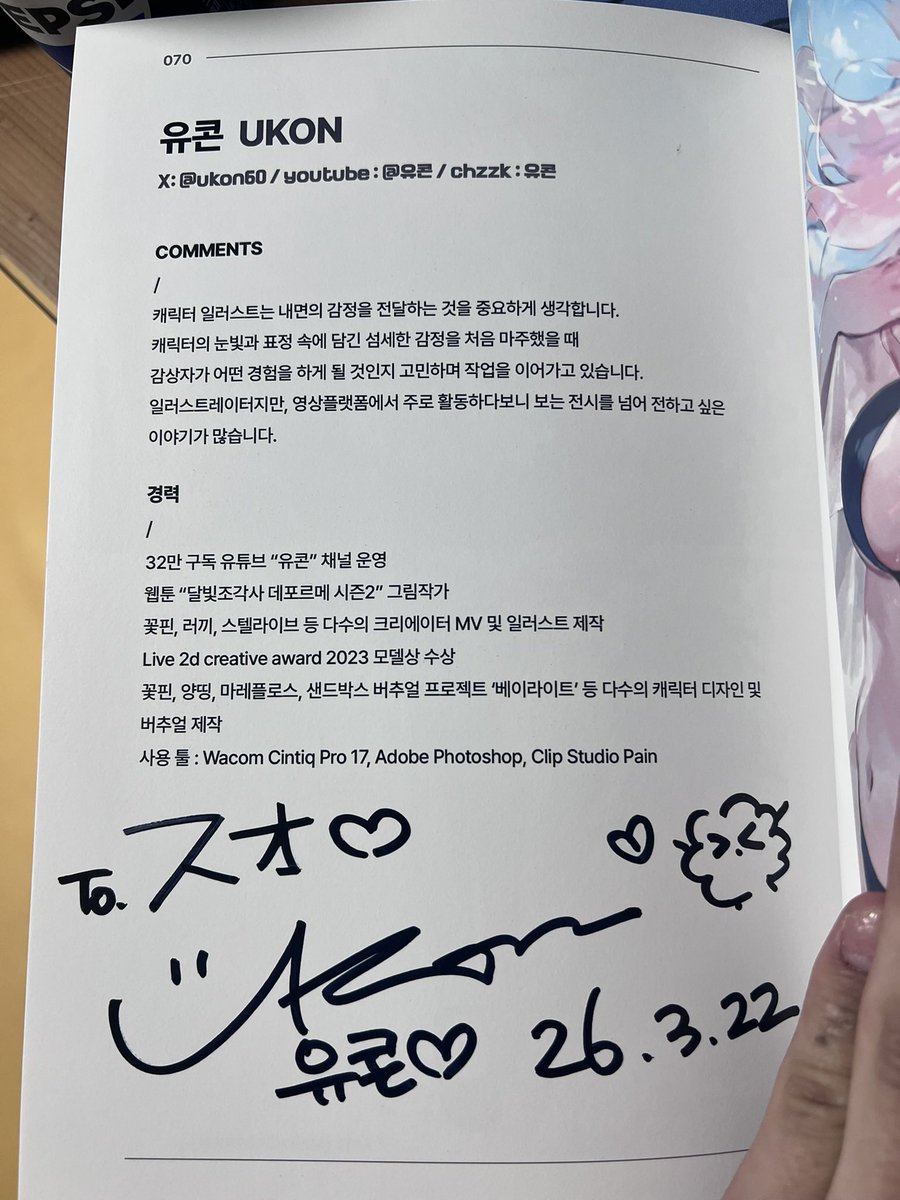 EPSI
070
유콘 UKON
X: @ukon60 / youtube : @유콘 / chzzk : 유콘
COMMENTS
/
캐릭터 일러스트는 내면의 감정을 전달하는 것을 중요하게 생각합니다.
캐릭터의 눈빛과 표정 속에 담긴 섬세한 감정을 처음 마주했을 때
감상자가 어떤 경험을 하게 될 것인지 고민하며 작업을 이어가고 있습니다.
일러스트레이터지만, 영상플랫폼에서 주로 활동하다보니 보는 전시를 넘어 전하고 싶은
이야기가 많습니다.
경력
/
32만 구독 유튜브 “유콘” 채널 운영
웹툰 “달빛조각사 데포르메 시즌2” 그림작가
꽃핀, 러끼, 스텔라이브 등 다수의 크리에이터 MV 및 일러스트 제작
Live 2d creative award 2023 모델상 수상
꽃핀, 양띵, 마레플로스, 샌드박스 버추얼 프로젝트 ‘베이라이트’ 등 다수의 캐릭터 디자인 및
버추얼 제작
사용 툴 : Wacom Cintiq Pro 17, Adobe Photoshop, Clip Studio Pain
To. スオ♡
♡ >.<
Ukon
유콘♡ 26.3.22